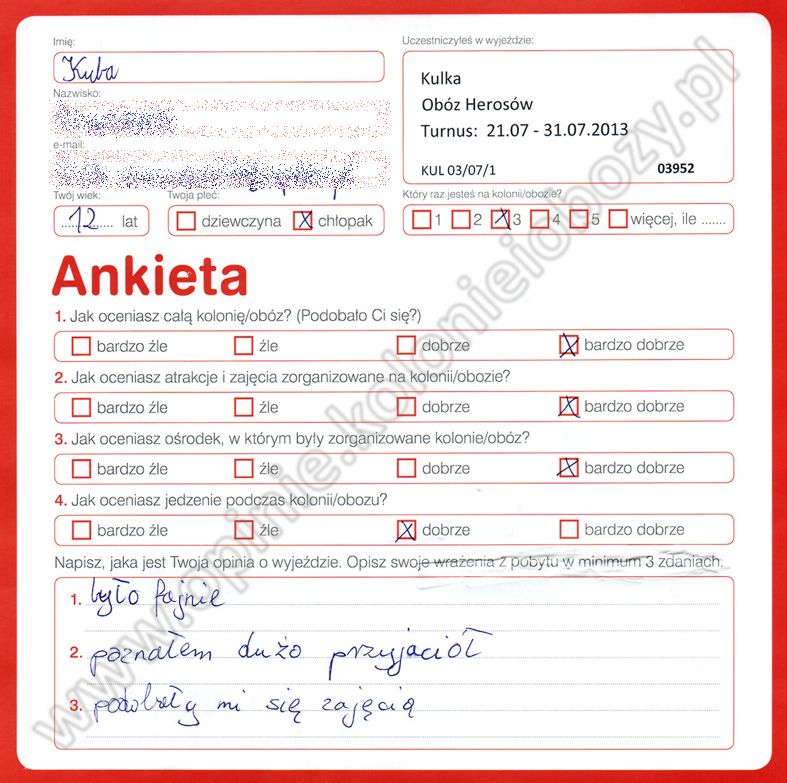 Imię:
Kuba
Nazwisko:
e-mail:
Twój wiek:
12 lat
Twoja płeć:
dziewczyna chłopak
Uczestniczyłeś w wyjeździe:
Kulka
Obóz Herosów
Turnus: 21.07 - 31.07.2013
KUL 03/07/1 03952
Który raz jesteś na kolonii/obozie?
1 2 3 4 5 więcej, ile .......
Ankieta
1. Jak oceniasz całą kolonię/obóz? (Podobało Ci się?)
bardzo źle źle dobrze bardzo dobrze
2. Jak oceniasz atrakcje i zajęcia zorganizowane na kolonii/obozie?
bardzo źle źle dobrze bardzo dobrze
3. Jak oceniasz ośrodek, w którym były zorganizowane kolonie/obóz?
bardzo źle źle dobrze bardzo dobrze
4. Jak oceniasz jedzenie podczas kolonii/obozu?
bardzo źle źle dobrze bardzo dobrze
Napisz, jaka jest Twoja opinia o wyjeździe. Opisz swoje wrażenia z pobytu w minimum 3 zdaniach.
1. było fajnie
2. poznałem dużo przyjaciół
3. podobały mi się zajęcią
www.opinie.kolonieiobozy.pl